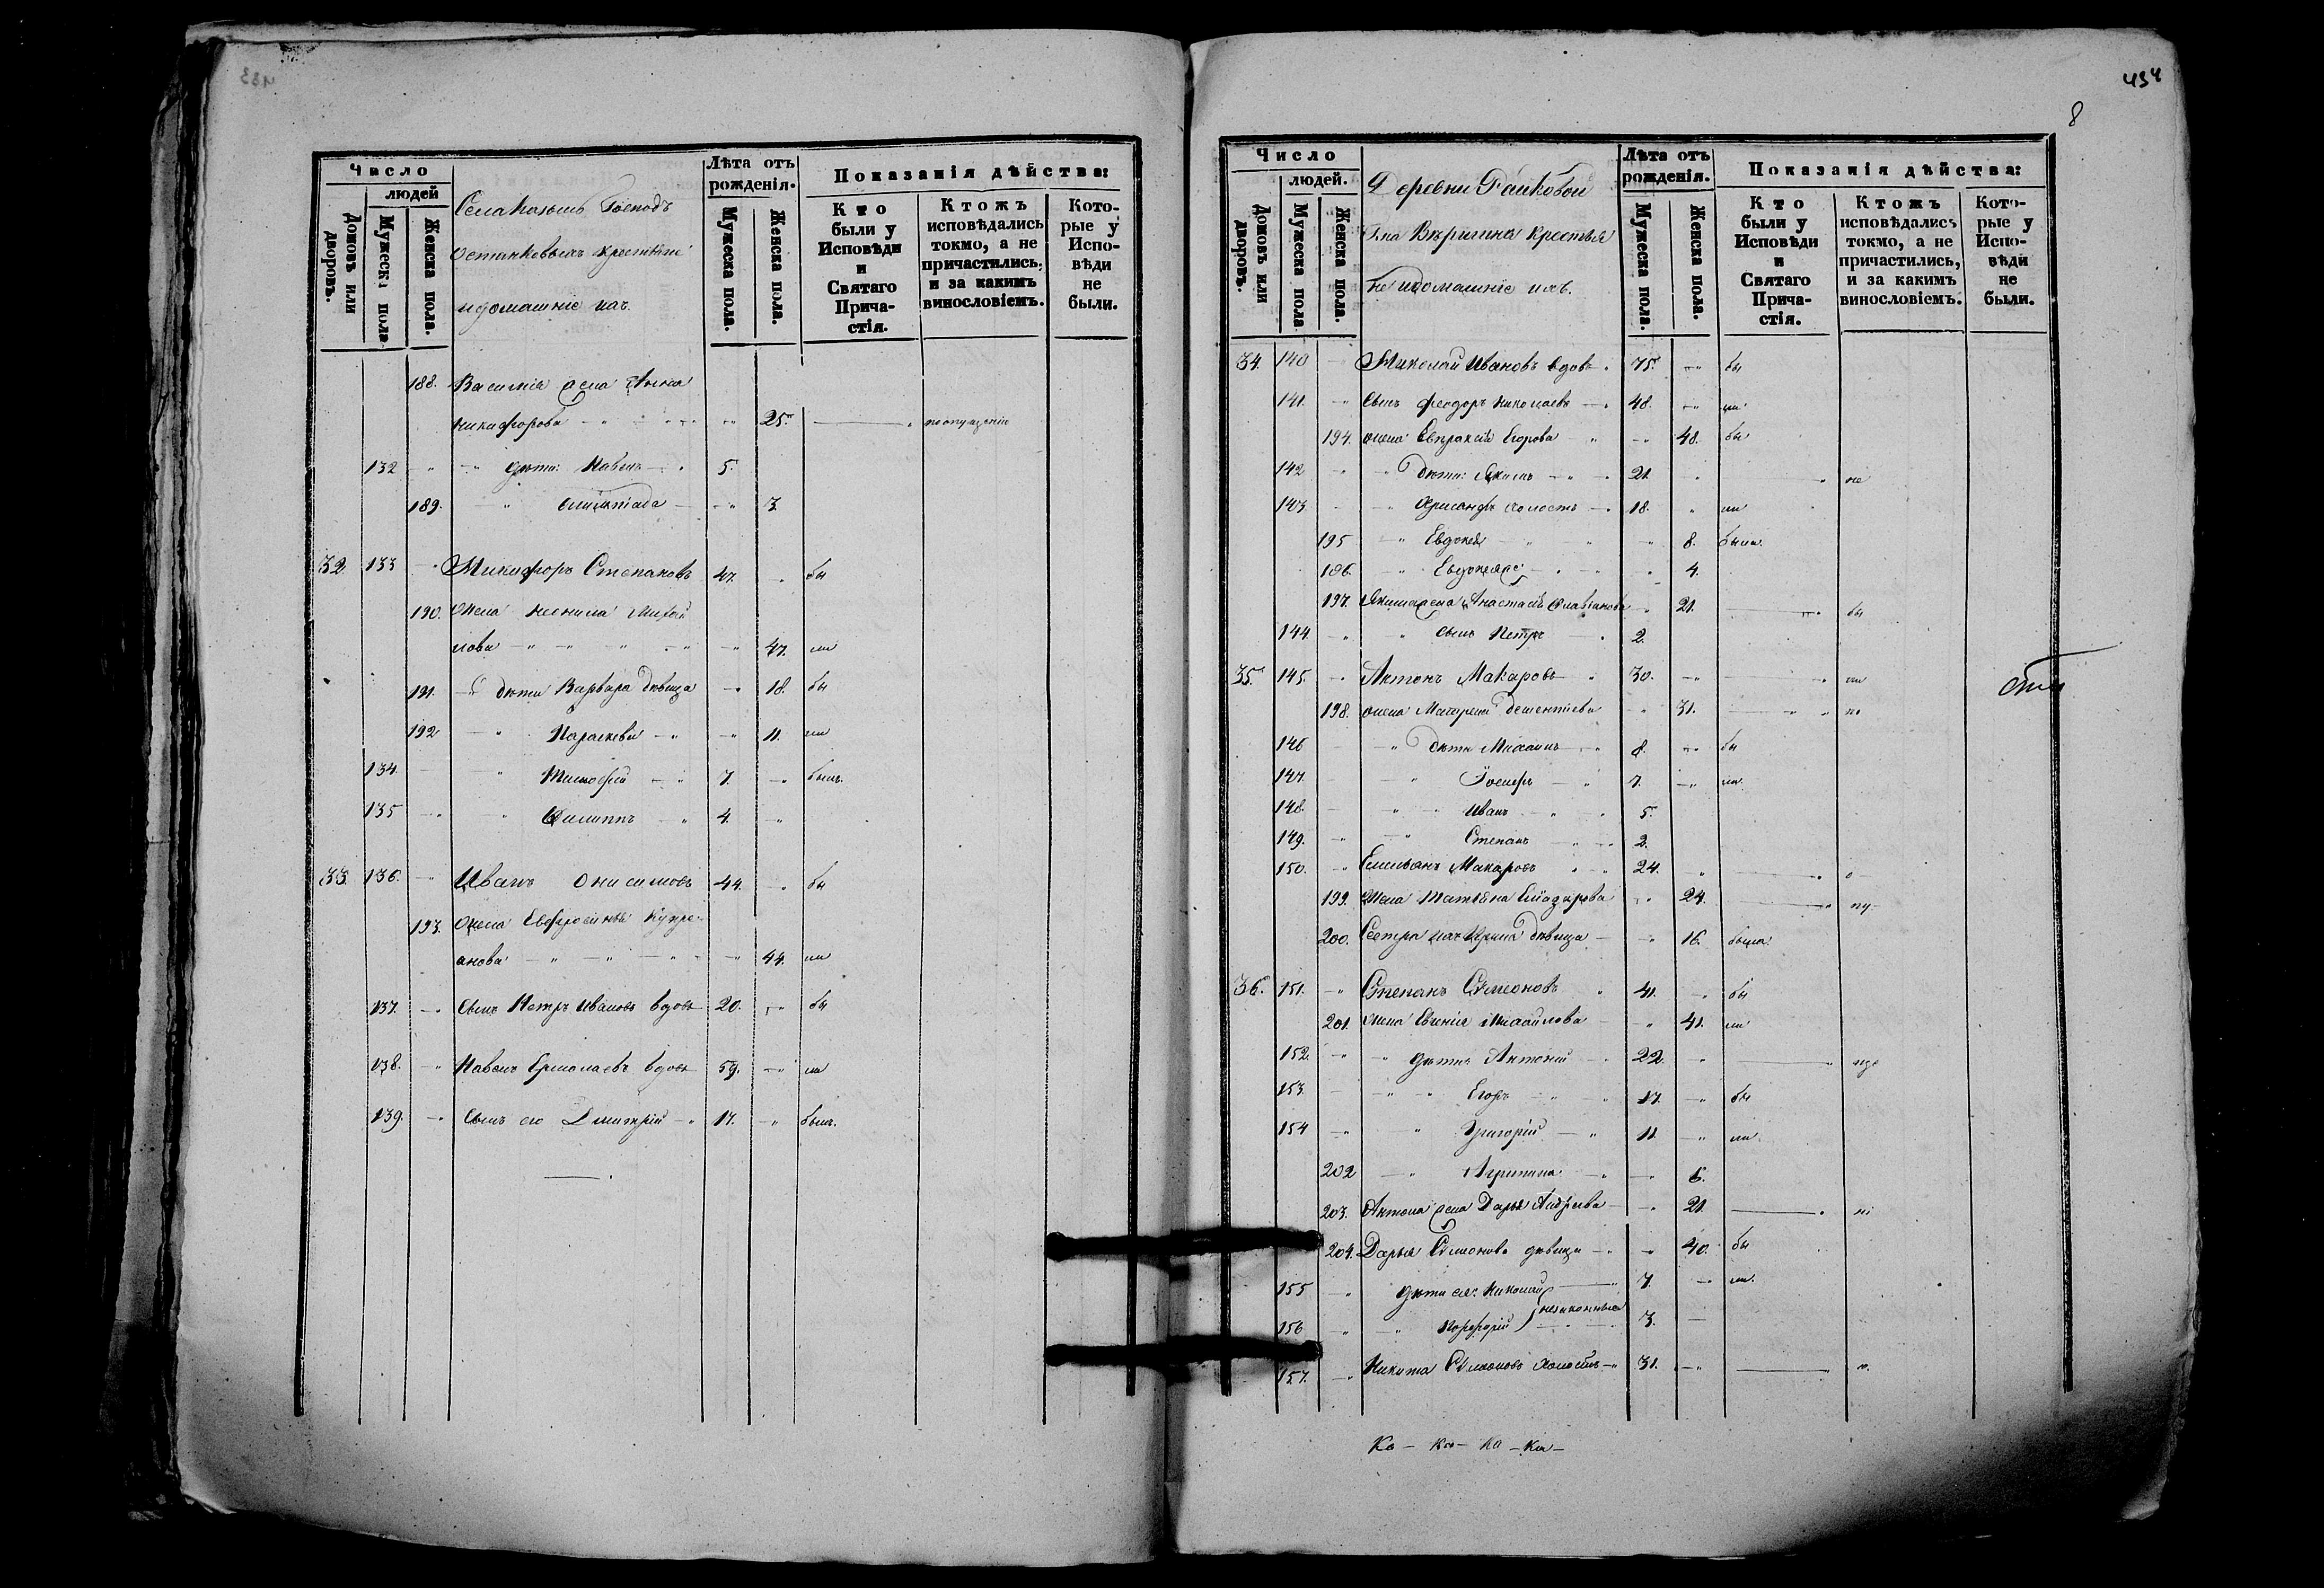 433
Число
людей
Домовъ или дворовъ.
Мужеска пола
Женска пола.
Села Козьмъ Господъ
Останковыхъ крестьяне
и домашніе ихъ.
Лѣта отъ рожденія.
Мужеска пола.
Женска пола.
Показанія дѣйства:
Кто были у Исповѣди и Святаго Причастія.
Ктожъ исповѣдались токмо, а не причастились, и за какимъ винословіемъ.
Которые у Исповѣди не были.
188. Василія жена Анна
Никифорова 25. по опущенію
132 дѣти: Павелъ 5.
189. 3.
32. 133 Никифоръ Степановъ 47. бы
190. Жена Ксенія Михай
лова 47. ли
191. дѣти Варвара дѣвица 18. бы
192 Параскева 11. ли
134. Тимофей 7. былъ.
135 Филиппъ 4.
33. 136. Иванъ Онисимовъ 44. бы
193. Жена Евфросинья Купре-
анова 44. ли
137. Сынъ Петръ Ивановъ вдовъ 20. бы
138. Павелъ Ермолаевъ вдовъ 59. ли
139. Сынъ его Дмитрій 17. былъ.
454
8
Число
людей.
Домовъ или дворовъ.
Мужеска пола
Женска пола.
Деревни
Г-на крестья
не и домашніе ихъ.
Лѣта отъ рожденія.
Мужеска пола.
Женска пола.
Показанія дѣйства:
Кто были у Исповѣди и Святаго Причастія.
Ктожъ исповѣдались токмо, а не причастились, и за какимъ винословіемъ.
Которые у Исповѣди не были.
34. 140 Николай Ивановъ вдовъ 75. бы
141. Сынъ Феодоръ Николаевъ 48. ли
194. жена Евпраксія Егорова 48. бы
142 дѣти: Якимъ 21. не
143 холостъ 18. ли
195 Евдокея 8. была.
196. Евдокея 4.
197. Якима жена Анастасія 21. бы
144 сынъ Петръ 2.
35. 145. Антонъ Макаровъ 30. ли
198. жена Матрена Дементіева 31. по
146 дѣти Михаилъ 8. бы
147. Іосифъ 7. ли.
148. Иванъ 5.
149. Степанъ 2.
150. Емельянъ Макаровъ 24. о
199. Жена Татьяна Елазарова 24. пу
200. Сестра ихъ Ирина дѣвица 16. была.
36. 151. Степанъ Симеоновъ 41. бы
201. Жена Евгенія Михайлова 41. ли
152. дѣти Антоній 22.
153. Егоръ 17. бы
154 Григорій 11. ли.
202 Агрипина 6.
203. Антона жена Дарья Андреева 21.
204. Дарья Симонова дѣвица 40. бы
155 дѣти ея: Николай 7. ли.
незаконные
156 Порфирій 3.
157. Никита Симоновъ холостъ 31.
Ка - ка - ка - ка -